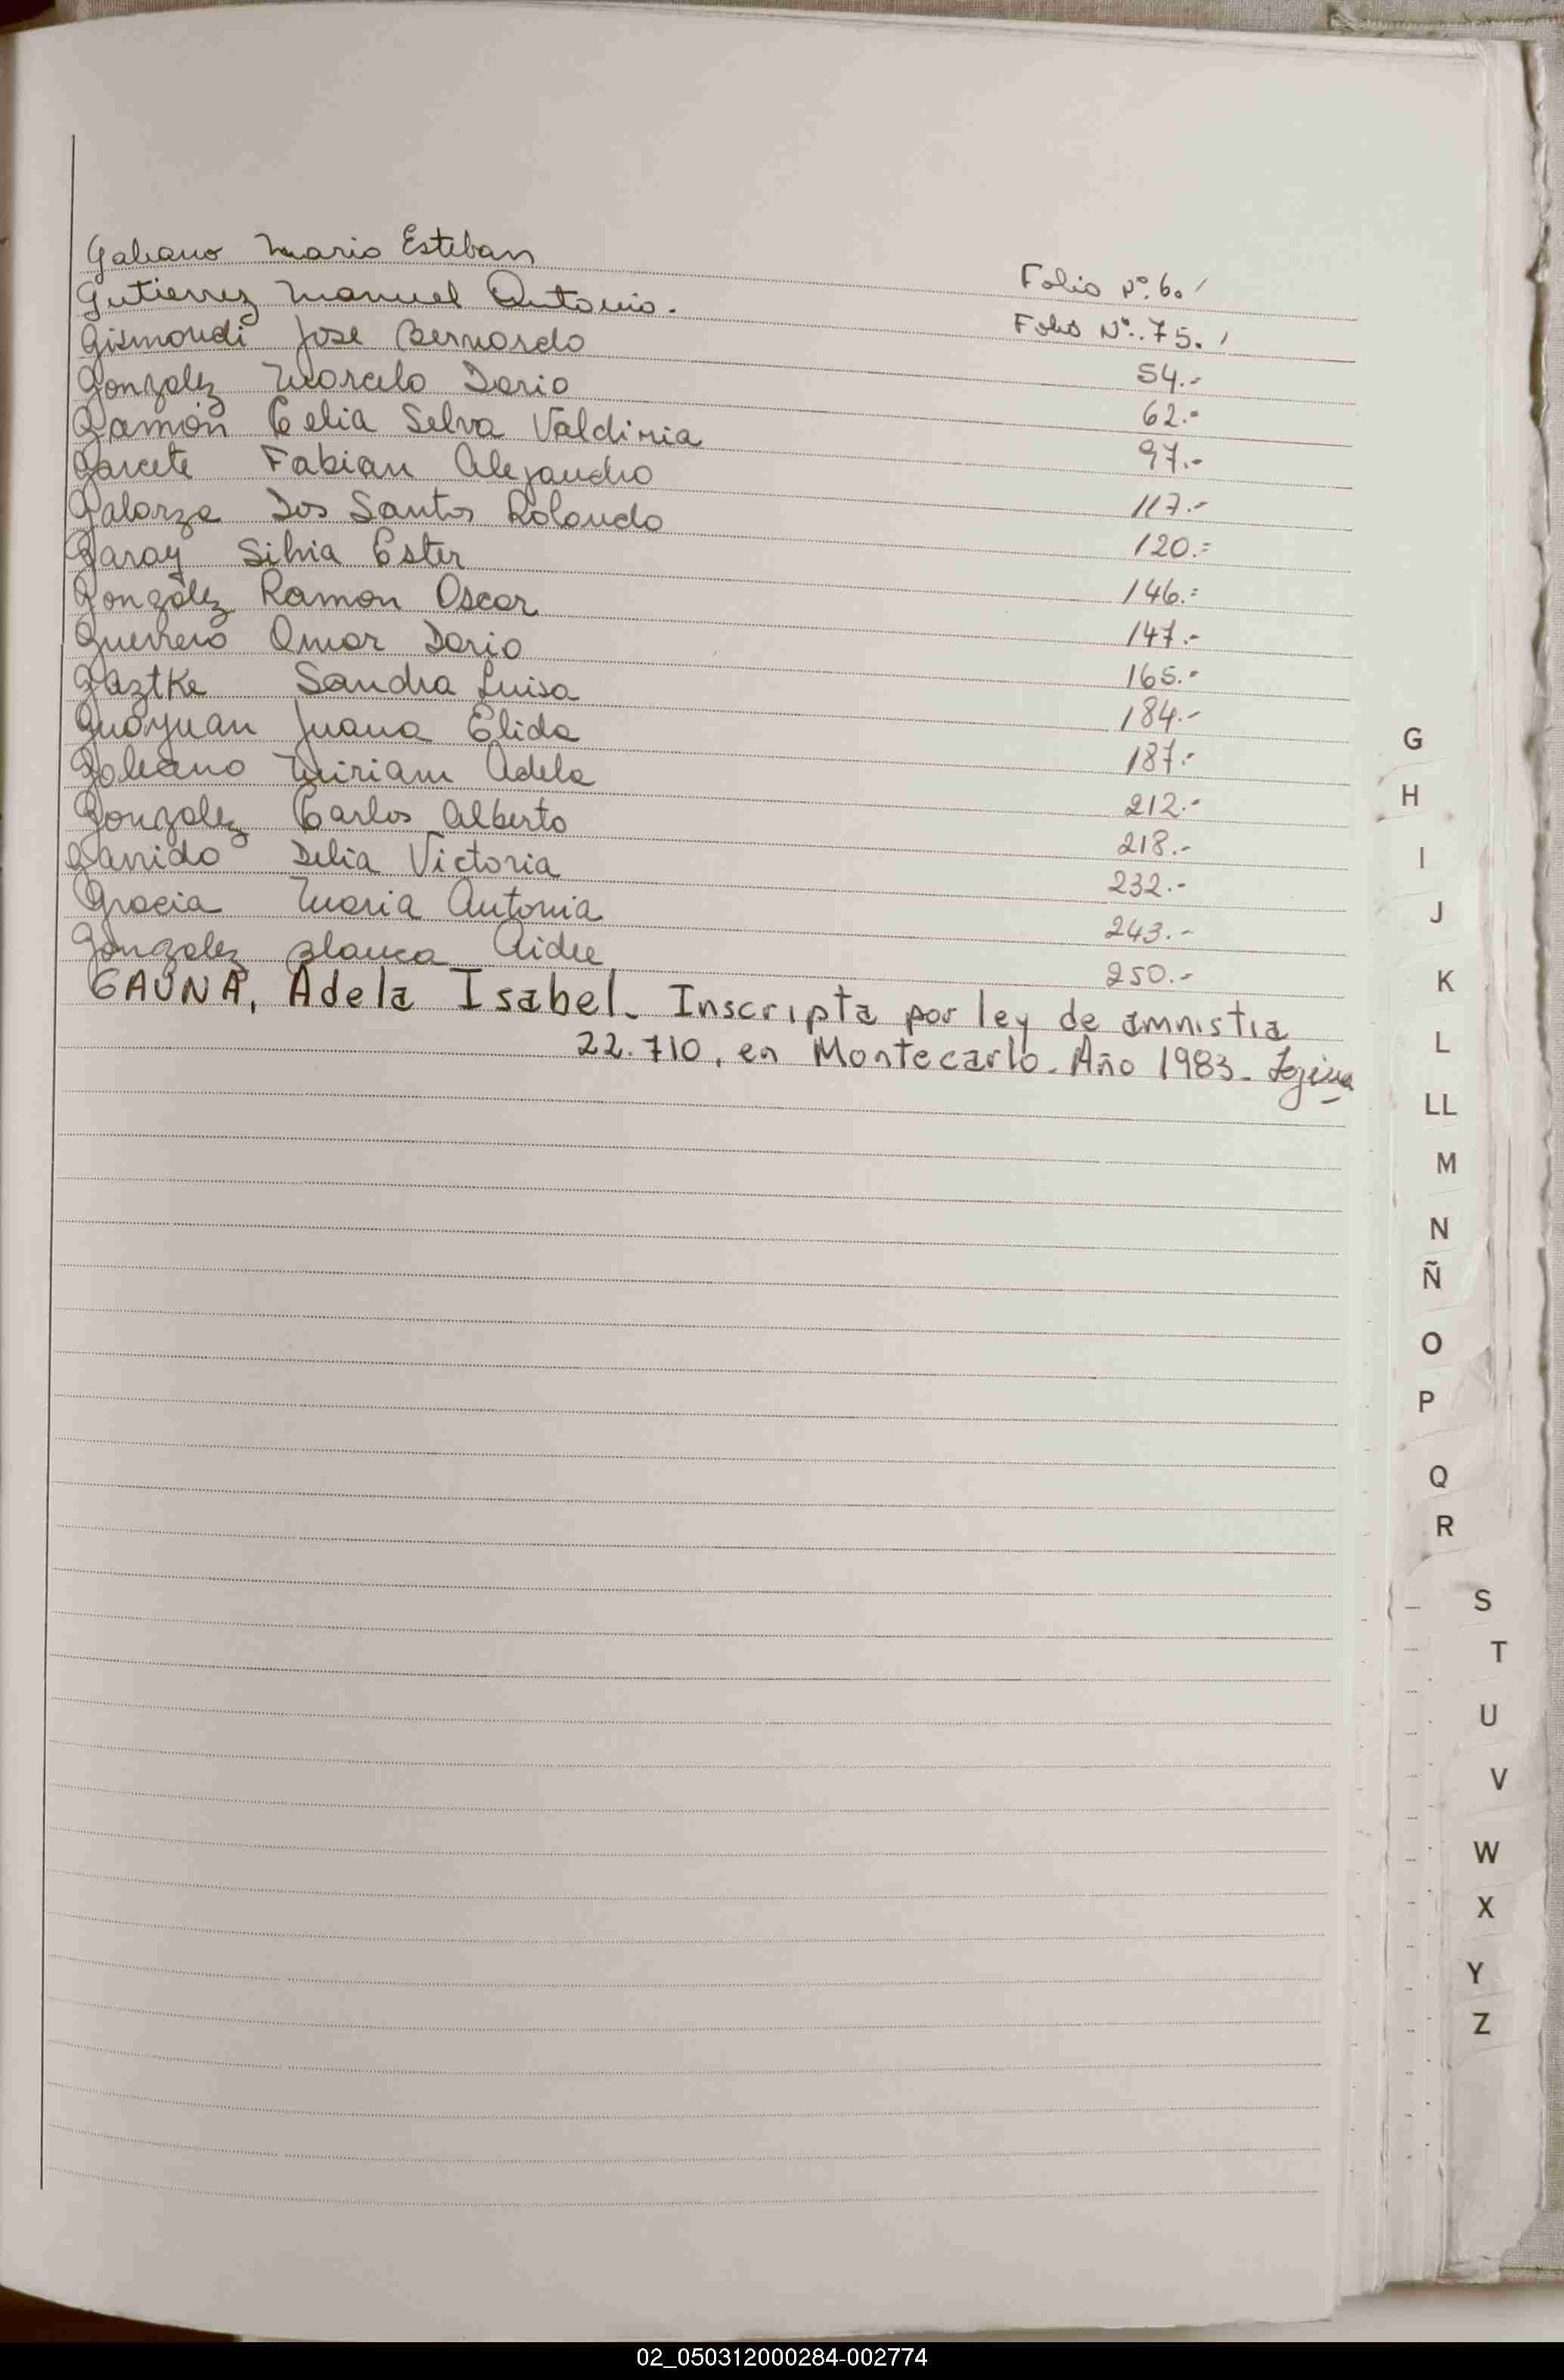 Galeano Mario Esteban Folio Nº. 6.
Gutierrez Manuel Antonio. Folio Nº. 75.
Gismondi Jose Bernardo 54.-
Gonzalez Marcelo Dario 62.-
Gamón Celia Selva Valdiria 97.-
Garcete Fabian Alejandro 117.-
Galarza Dos Santos Rolando 120.=
Garay Silvia Ester 146.=
González Ramon Oscar 147.-
Guerrero Omar Dario 165.-
Gaztke Sandra Luisa 184.-
Guayuan Juana Elida 187.-
Galeano Miriam Adela 212.-
Gonzalez Carlos Alberto 218.-
Garrido Delia Victoria 232.-
Gracia Maria Antonia 243.-
Gonzalez Blanca Aidee 250.-
GAUNA, Adela Isabel. Inscripta por ley de amnistia
22.710, en Montecarlo. Año 1983-
G
H
I
J
K
L
LL
M
N
Ñ
O
P
Q
R
S
T
U
V
W
X
Y
Z
02_050312000284-002774